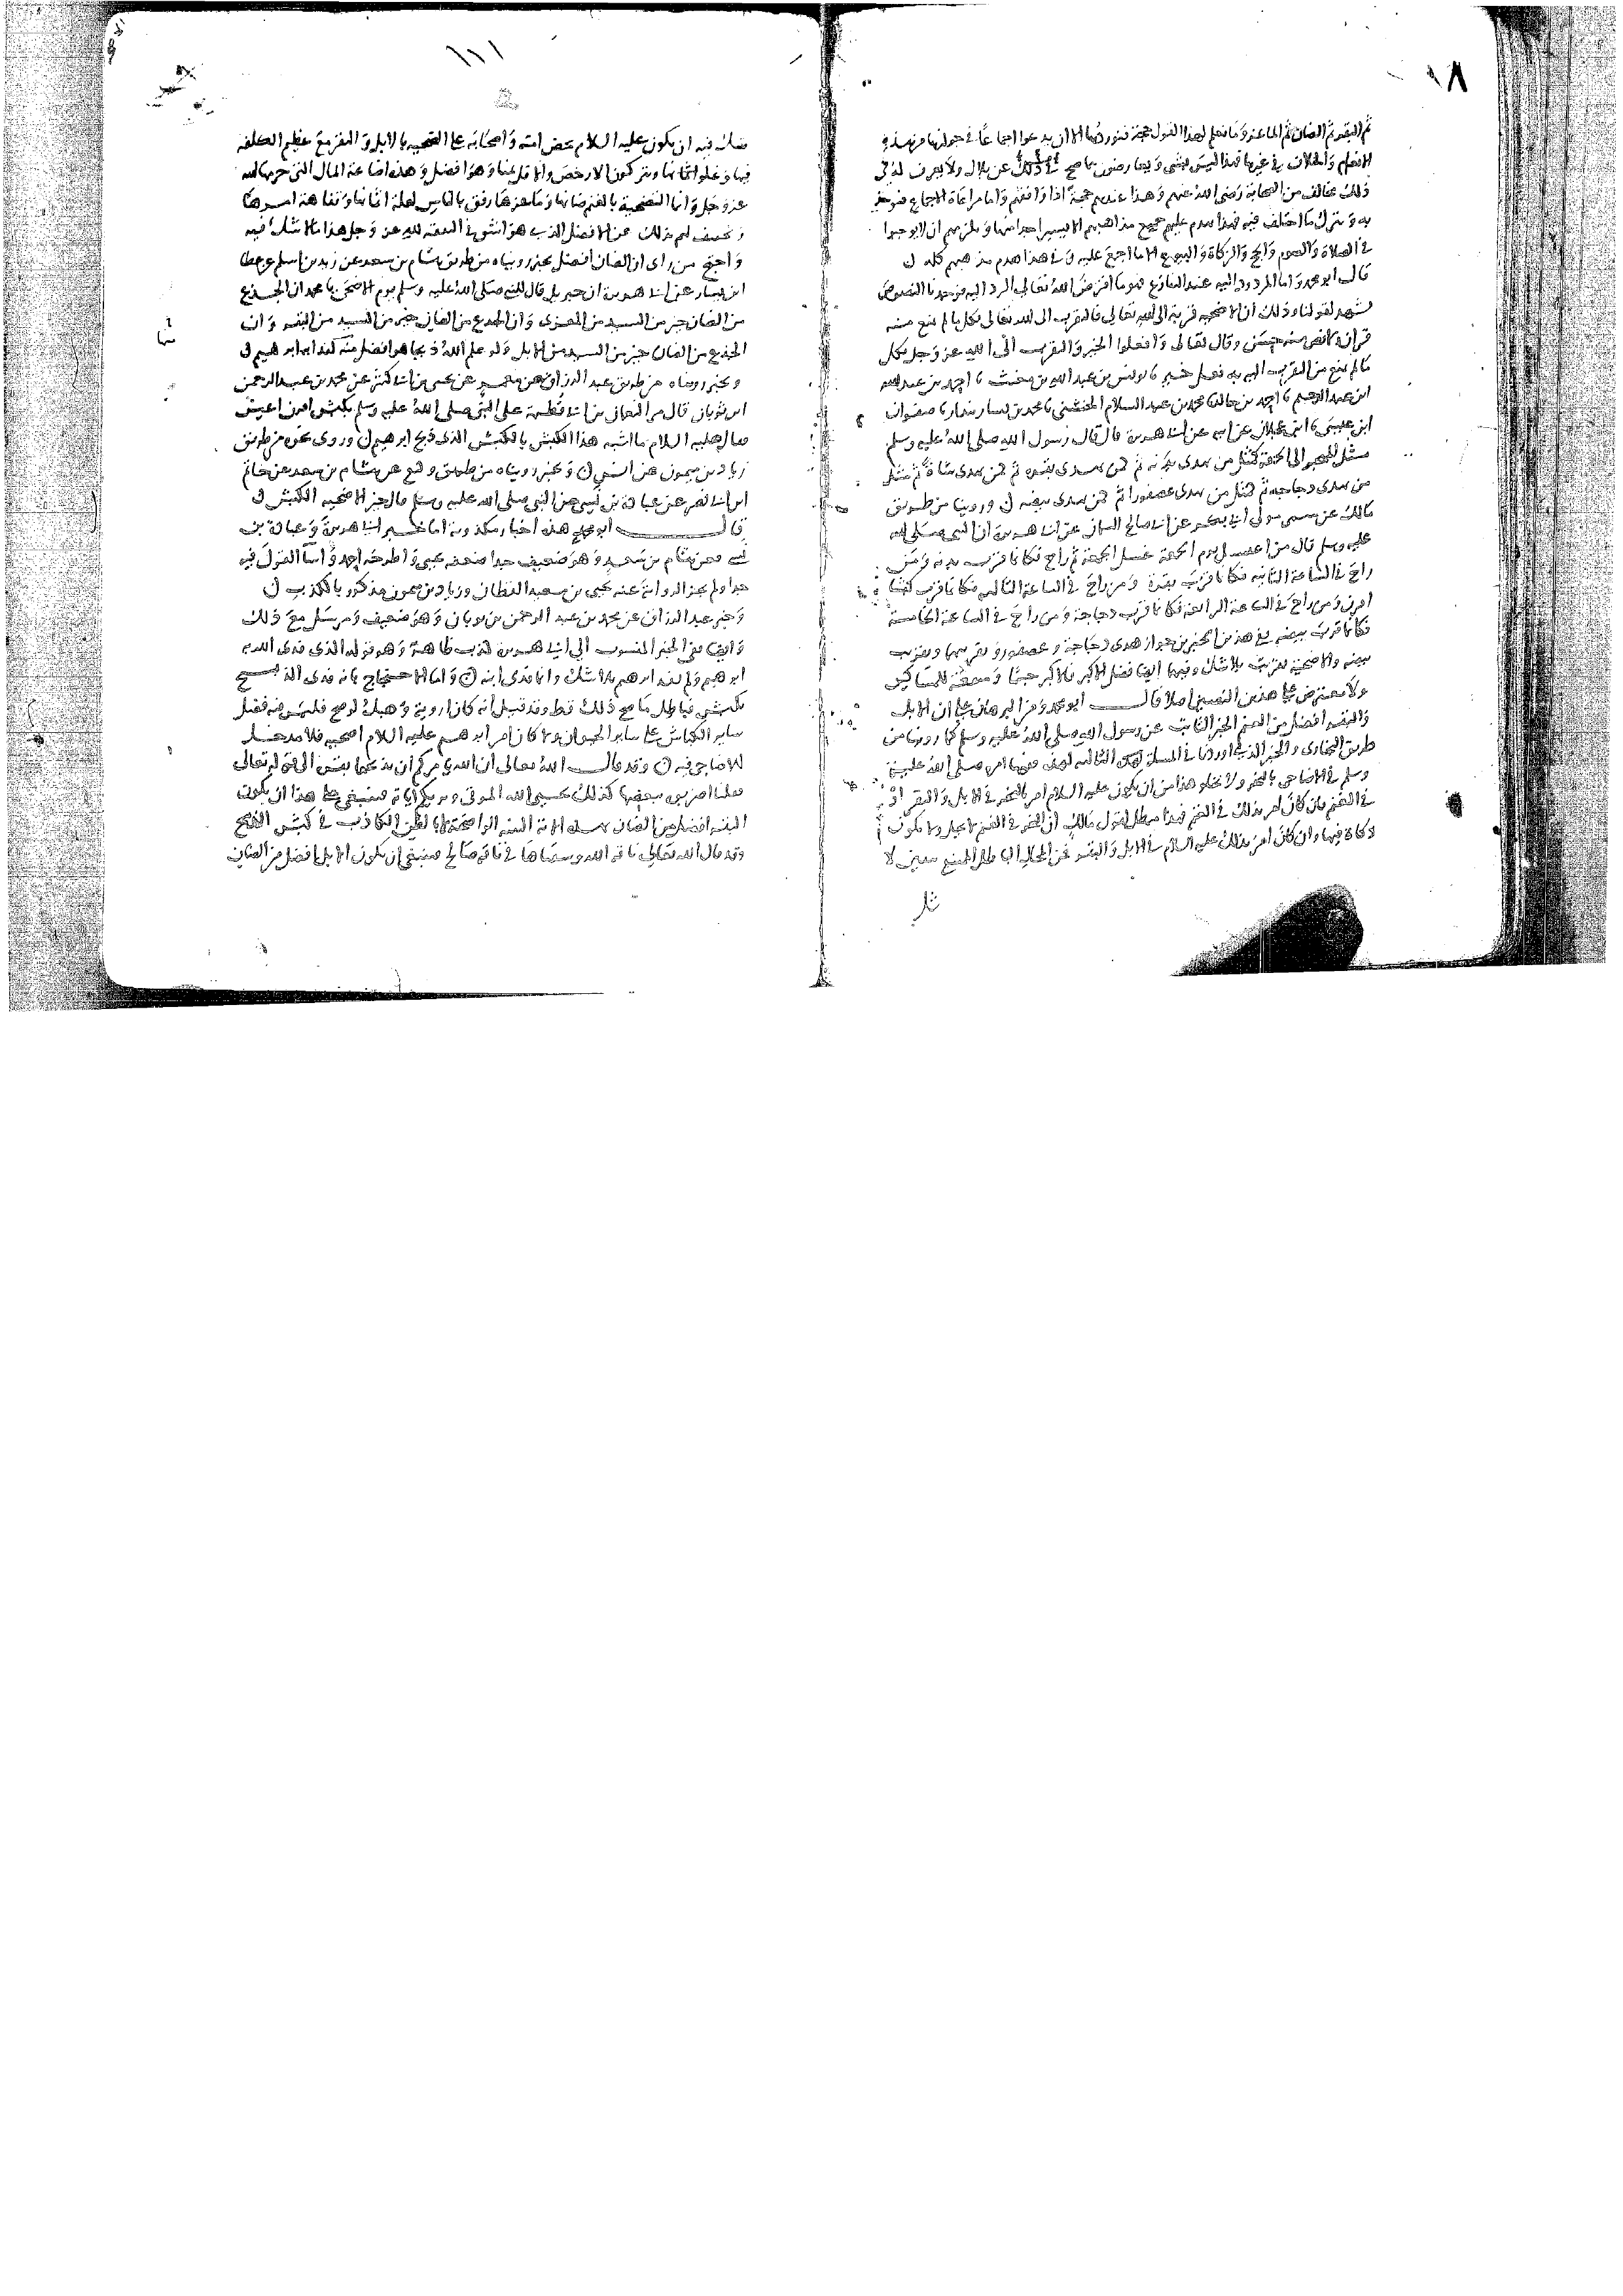 ١٨
ثم البقر ثم الضان ثم الماعز وما نعلم لهذا القول حجة فنوردها الا ان يدعوا اجماعا في جوازها من هذه
الانعام والخلاف في غيرها فهذا ليس بشي ويعارضون بما صح في ذلك عن بلال ولا يعرف له في
ذلك مخالف من الصحابة رضي الله عنهم وهذا عندهم حجة اذا وافقهم واما مراعاة الاجماع فنوخذ
به و نترك ما اختلف فيه فهذا يهدم عليهم جميع مذاهبهم الا يسيرا جدا منها ويلزمهم ان لا يوجبوا
في الصلاة والصوم والحج والزكاة والبيوع الا ما اجمع عليه وفي هذا هدم مذهبهم كله
قال ابو محمد واما المردود اليه عند التنازع فهو ما افترض الله تعالى الرد اليه فوجدنا النصوص
تشهد لقولنا وذلك ان الاضحية قربة الى الله تعالى فالتقرب الى الله تعالى بكل ما لم يمنع منه
قران ولا نص سنه حسن وقال تعالى وافعلوا الخير والتقرب الى الله عز وجل بكل
ما لم يمنع من التقرب اليه به فعل خير نا يونس بن عبد الله بن مغيث نا احمد بن عبد الله
ابن عبد الرحيم نا احمد بن خالد نا محمد بن عبد السلام الخشني نا محمد بن بشار بندار نا صفوان
ابن عيسى نا ابن عجلان عن ابيه عن ابي هريرة قال قال رسول الله صلى الله عليه وسلم
مثل المهجر الى الجمعة كمثل من يهدي بدنه ثم كمن يهدي بقره ثم كمن يهدي شاة ثم مثل
من يهدي دجاجه ثم كمثل من يهدي عصفورا ثم كمن يهدي بيضه وروينا من طريق
مالك عن سمي مولى ابي بكر عن ابي صالح السمان عن ابي هريرة ان النبي صلى الله
عليه وسلم قال من اغتسل يوم الجمعة غسل الجنابة ثم راح فكانما قرب بدنه ومن
راح في الساعة الثانيه فكانما قرب بقرة ومن راح في الساعة الثالثه فكانما قرب كبشا
اقرن ومن راح في الساعة الرابعه فكانما قرب دجاجة ومن راح في الساعة الخامسة
فكانما قرب بيضه ففي هذين الخبرين جواز هدي دجاجة وعصفور وتقريبهما وتقريب
بيضه والاضحية تقريب بلا شك وفيهما ايضا فضل الاكبر فالاكبر جسما ومنفعة للمساكين
ولا معترض على هذين النصين اصلا قال ابو محمد ومن البرهان على ان الابل
والبقر افضل من الغنم الخبر الثابت عن رسول الله صلى الله عليه وسلم كما روينا من
طريق البخاري والخبر الذي اوردنا في المسلة التي الثالثه لهذه فيهما امره صلى الله عليه
وسلم في الاضاحي بالنحر ولا يخلو هذا من ان يكون عليه السلام امر بالنحر في الابل والبقر او
في الغنم فان كان امر بذلك في الغنم فهذا مبطل لقول مالك ان النحر في الغنم لا يحل ولا يكون
ذكاة فيها وان كان امر بذلك عليه السلام في الابل والبقر فمن المحال الباطل الممتنع الذي لا
شك
١١١
شك فيه ان يكون عليه السلام يحض امته واصحابه على التضحيه بالابل والبقر مع عظيم الكلفه
فيها وغلو اثمانها ويتركون الارخص والاقل ثمنا وهو افضل وهذه اضاعة المال التي حرمها الله
عز وجل وانما التضحية بالغنم ضانها وماعزها رفق بالناس لقلة اثمانها وتفاهة امرها
وتخفيف لهم بذلك عن الافضل الذي هو اشق في النفقه لله عز وجل هذا ما لا شك فيه
واحتج من راى ان الضان افضل بخبر رويناه من طريق هشام بن سعد عن زيد بن اسلم عن عطا
ابن يسار عن ابي هريرة ان جبريل قال للنبي صلى الله عليه وسلم يوم الاضحى يا محمد ان الجذع
من الضان خير من السيد من المعزى وان الجذع من الضان خير من السيد من البقر وان
الجذع من الضان خير من السيد من الابل ولو علم الله ذبحا هو افضل منه لفدا به ابراهيم
وبخبر رويناه من طريق عبد الرزاق عن معمر عن يحيى بن ابي كثير عن محمد بن عبد الرحمن
ابن ثوبان قال مر النعمان بن ابي فطيمة على النبي صلى الله عليه وسلم بكبش اقرن اعين
فقال عليه السلام ما اشبه هذا الكبش بالكبش الذي ذبح ابراهيم وروي نحوه من طريق
زياد بن ميمون عن انس وبخبر رويناه من طريق وكيع عن هشام بن سعد عن حاتم
ابن ابي نصر عن عبادة بن نسي عن النبي صلى الله عليه وسلم قال خير الاضحيه الكبش
قال ابو محمد هذه اخبار مكذوبة اما خبر ابي هريرة وعبادة بن
نسي فعن هشام بن سعد وهو ضعيف جدا ضعفه يحيى واطرحه احمد واسا القول فيه
جدا ولم يجز الرواية عنه يحيى بن سعيد القطان وزياد بن ميمون مذكور بالكذب
وخبر عبد الرزاق عن محمد بن عبد الرحمن بن ثوبان وهو ضعيف ومرسل مع ذلك
وايضا ففي الخبر المنسوب الى ابي هريرة كذب ظاهر وهو قوله الذي فدي الله به
ابراهيم ولم يفد ابراهيم بلا شك وانما فدى ابنه واما الاحتجاج بانه فدى الذبيح
بكبش فباطل ما صح ذلك قط وقد قيل انه كان اروية وهبك لو صح فليس فيه فضل
ساير الكباش على ساير الحيوان ولا كان امر ابراهيم عليه السلام اضحيه فلا مدخل
للاضاحي فيه وقد قال الله تعالى ان الله يامركم ان تذبحوا بقره الى قوله تعالى
فقلنا اضربوه ببعضها كذلك يحيي الله الموتى ويريكم اياته فينبغي على هذا ان يكون
البقر افضل من الضان بهذه الاية البينه الواضحة لا بالظن الكاذب في كبش الذبيح
وقد قال الله تعالى ناقة الله وسقياها في ناقة صالح فينبغي ان يكون الابل افضل من الضان